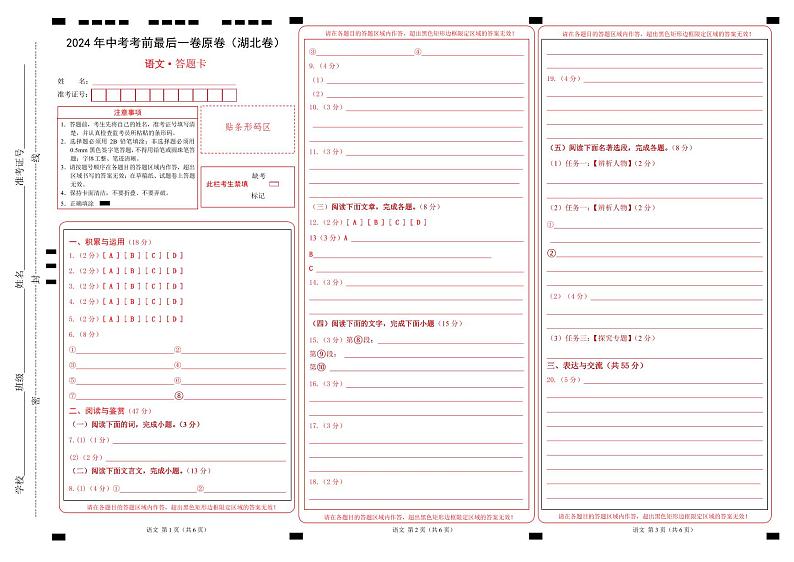 学校
班级
姓名
准考证号
密
封
线
2024 年中考考前最后一卷原卷（湖北卷）
语文·答题卡
姓　名：
准考证号：
注意事项
1．答题前，考生先将自己的姓名，准考证号填写清
楚，并认真检查监考员所粘贴的条形码。
2．选择题必须用 2B 铅笔填涂；非选择题必须用
0.5mm 黑色签字笔答题，不得用铅笔或圆珠笔答
题；字体工整、笔迹清晰。
3．请按题号顺序在各题目的答题区域内作答，超出
区域书写的答案无效；在草稿纸、试题卷上答题
无效。
4．保持卡面清洁，不要折叠、不要弄破。
5．正确填涂
贴条形码区
此栏考生禁填
缺考
标记
一、积累与运用（18 分）
1.（2 分）[ A ] [ B ] [ C ] [ D ]
2.（2 分）[ A ] [ B ] [ C ] [ D ]
3.（2 分）[ A ] [ B ] [ C ] [ D ]
4.（2 分）[ A ] [ B ] [ C ] [ D ]
5.（2 分）[ A ] [ B ] [ C ] [ D ]
6.（8 分）
① ②
③ ④
⑤ ⑥
⑦ ⑧
二、阅读与鉴赏（47 分）
（一）阅读下面的词，完成小题。（3 分）
7.(1)（1 分）
(2)（2 分）
（二）阅读下面文言文，完成小题。（13 分）
8.(1)（4 分）① ②
请在各题目的答题区域内作答，超出黑色矩形边框限定区域的答案无效！
语文 第 1 页（共 6 页）
请在各题目的答题区域内作答，超出黑色矩形边框限定区域的答案无效！
③ ④
9.（4 分）
（1）
（2）
10.（3 分）
11.（3 分）
（三）阅读下面文章，完成各题。（8 分）
12.（2 分）[ A ] [ B ] [ C ] [ D ]
13（3 分）A
B
C
14.（3 分）
（四）阅读下面的文字，完成下面小题（15 分）
15.（3 分）第⑧段：
第⑨段：
第⑩
16.（3 分）
17.（3 分）
18.（2 分）
请在各题目的答题区域内作答，超出黑色矩形边框限定区域的答案无效！
语文 第 2 页（共 6 页）
请在各题目的答题区域内作答，超出黑色矩形边框限定区域的答案无效！
19.（4 分）
（五）阅读下面名著选段，完成各题。（8 分）
（1）任务一：【辨析人物】（2 分）
（2）任务一：【辨析人物】（2 分）
①
②
（2）（4 分）
（3）任务三：【探究专题】（2 分）
三、表达与交流（共 55 分）
20.（5 分）
请在各题目的答题区域内作答，超出黑色矩形边框限定区域的答案无效！
语文 第 3 页（共 6 页）